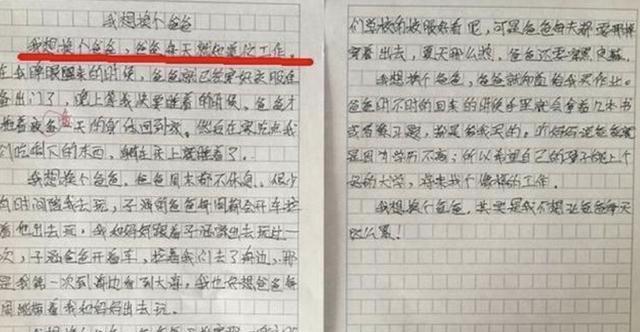 我想换个爸爸
我想换个爸爸，爸爸每天就知道工作。
在我睁眼醒来的时候，爸爸就已经穿好衣服准
备出门了，晚上等我快要睡着的时候，爸爸才
拖着疲惫一天的身体回到家。然后在
吃剩下的东西，躺在床上就睡着了。
我想换个爸爸。爸爸周末都不休息。很少
有时间陪我去玩，子涵的爸爸每周都会开车拉
着他出去玩，我和妈妈跟着子涵蹭出去玩过一
次，子涵爸开着车，拉着我们去了海边，那
是我第一次到海边看到大海，我也好想爸爸每
周能抽着我和妈妈出去玩。
我想换个爸爸
们学校的校服好看呢，可是爸爸每天都要
穿着出去，夏天那么热，爸爸还要穿
我想换个爸爸，爸爸就知道给我买作业。
爸爸时不时的回来的时候手里就会拿着几本书
或者练习题，都是给我买的。妈妈说爸爸就
是因为学历不高，所以希望自己的孩子能上个
好的大学，将来找个像样的工作。
我想换个爸爸，其实是我不想让爸爸每天
这么累！